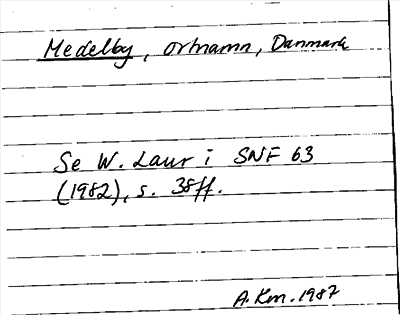 Medelby, ortnamn, Danmark
Se W. Laur i SNF 63
(1982), s. 38ff.
A. Km. 1987